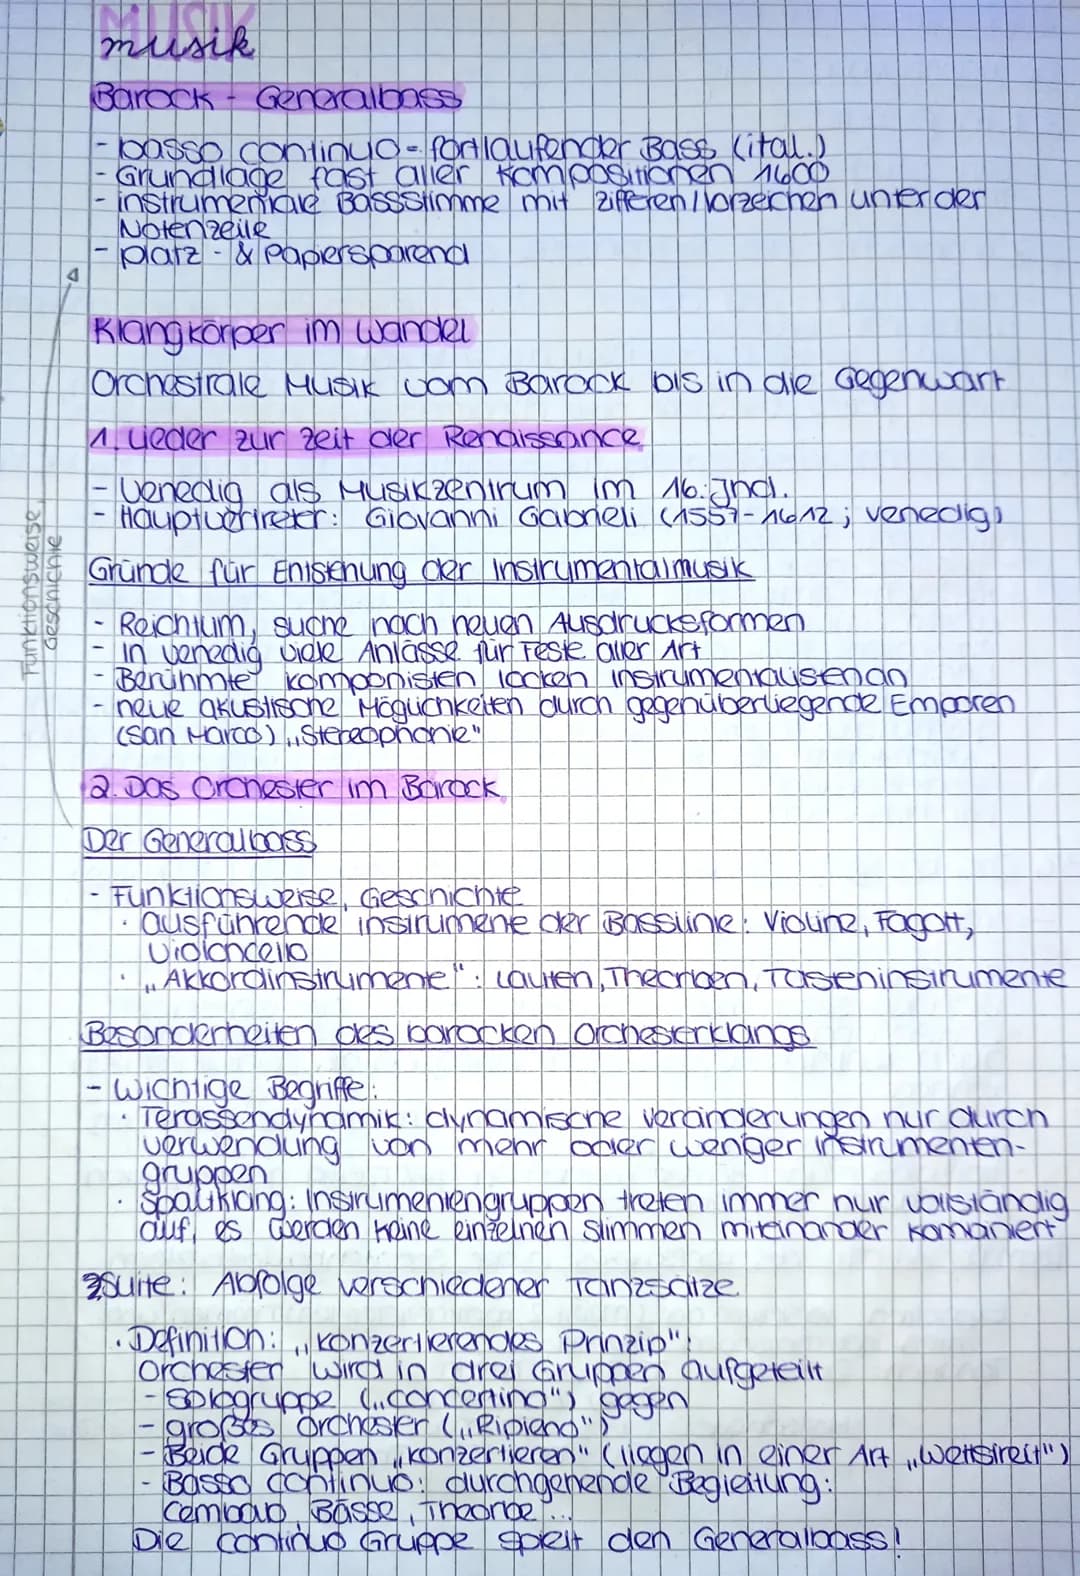 MUSIK
musik
Barock - Generalbass
- basso continuo = fortlaufender Bass (ital.)
- Grundlage fast aller Kompositionen 1600
- instrumentale Bassstimme mit Zifferen/Vorzeichen unter der
Notenzeile
- platz - & Papiersparend
Klangkörper im Wandel
Orchestrale Musik vom Barock bis in die Gegenwart
1. Lieder zur Zeit der Renaissance
- Venedig als Musikzentrum im 16. Jhd.
- Hauptvertreter: Giovanni Gabrieli (1557-1612; Venedig)
Funktionsweise,
Geschichte
Gründe für Entstehung der Instrumentalmusik
- Reichtum, suche nach neuen Ausdrucksformen
- in Venedig viele Anlässe für Feste aller Art
- Berühmte Komponisten locken Instrumentalisten an
- neue akustische Möglichkeiten durch gegenüberliegende Emporen
(San Marco) „Stereophonie"
2. Das Orchester im Barock
Der Generalbass
- Funktionsweise, Geschichte
· ausführende Instrumente der Basslinie: Violine, Fagott,
Violoncello
· „Akkordinstrumente": Lauten, Theorben, Tasteninstrumente
Besonderheiten des barocken Orchesterklangs
- Wichtige Begriffe:
· Terassendynamik: dynamische Veränderungen nur durch
Verwendung von mehr oder weniger Instrumenten-
gruppen
· Spaltklang: Instrumentengruppen treten immer nur vollständig
auf, es werden keine einzelnen Stimmen miteinander kombiniert
Suite: Abfolge verschiedener Tanzsätze
· Definition: „konzertierendes Prinzip":
Orchester wird in drei Gruppen aufgeteilt
- Sologruppe („concertino") gegen
- großes Orchester („Ripieno")
- Beide Gruppen „konzertieren" (liegen in einer Art „Wettstreit")
- Basso continuo: durchgehende Begleitung:
Cembalo, Bässe, Theorbe ...
Die continuo Gruppe spielt den Generalbass!